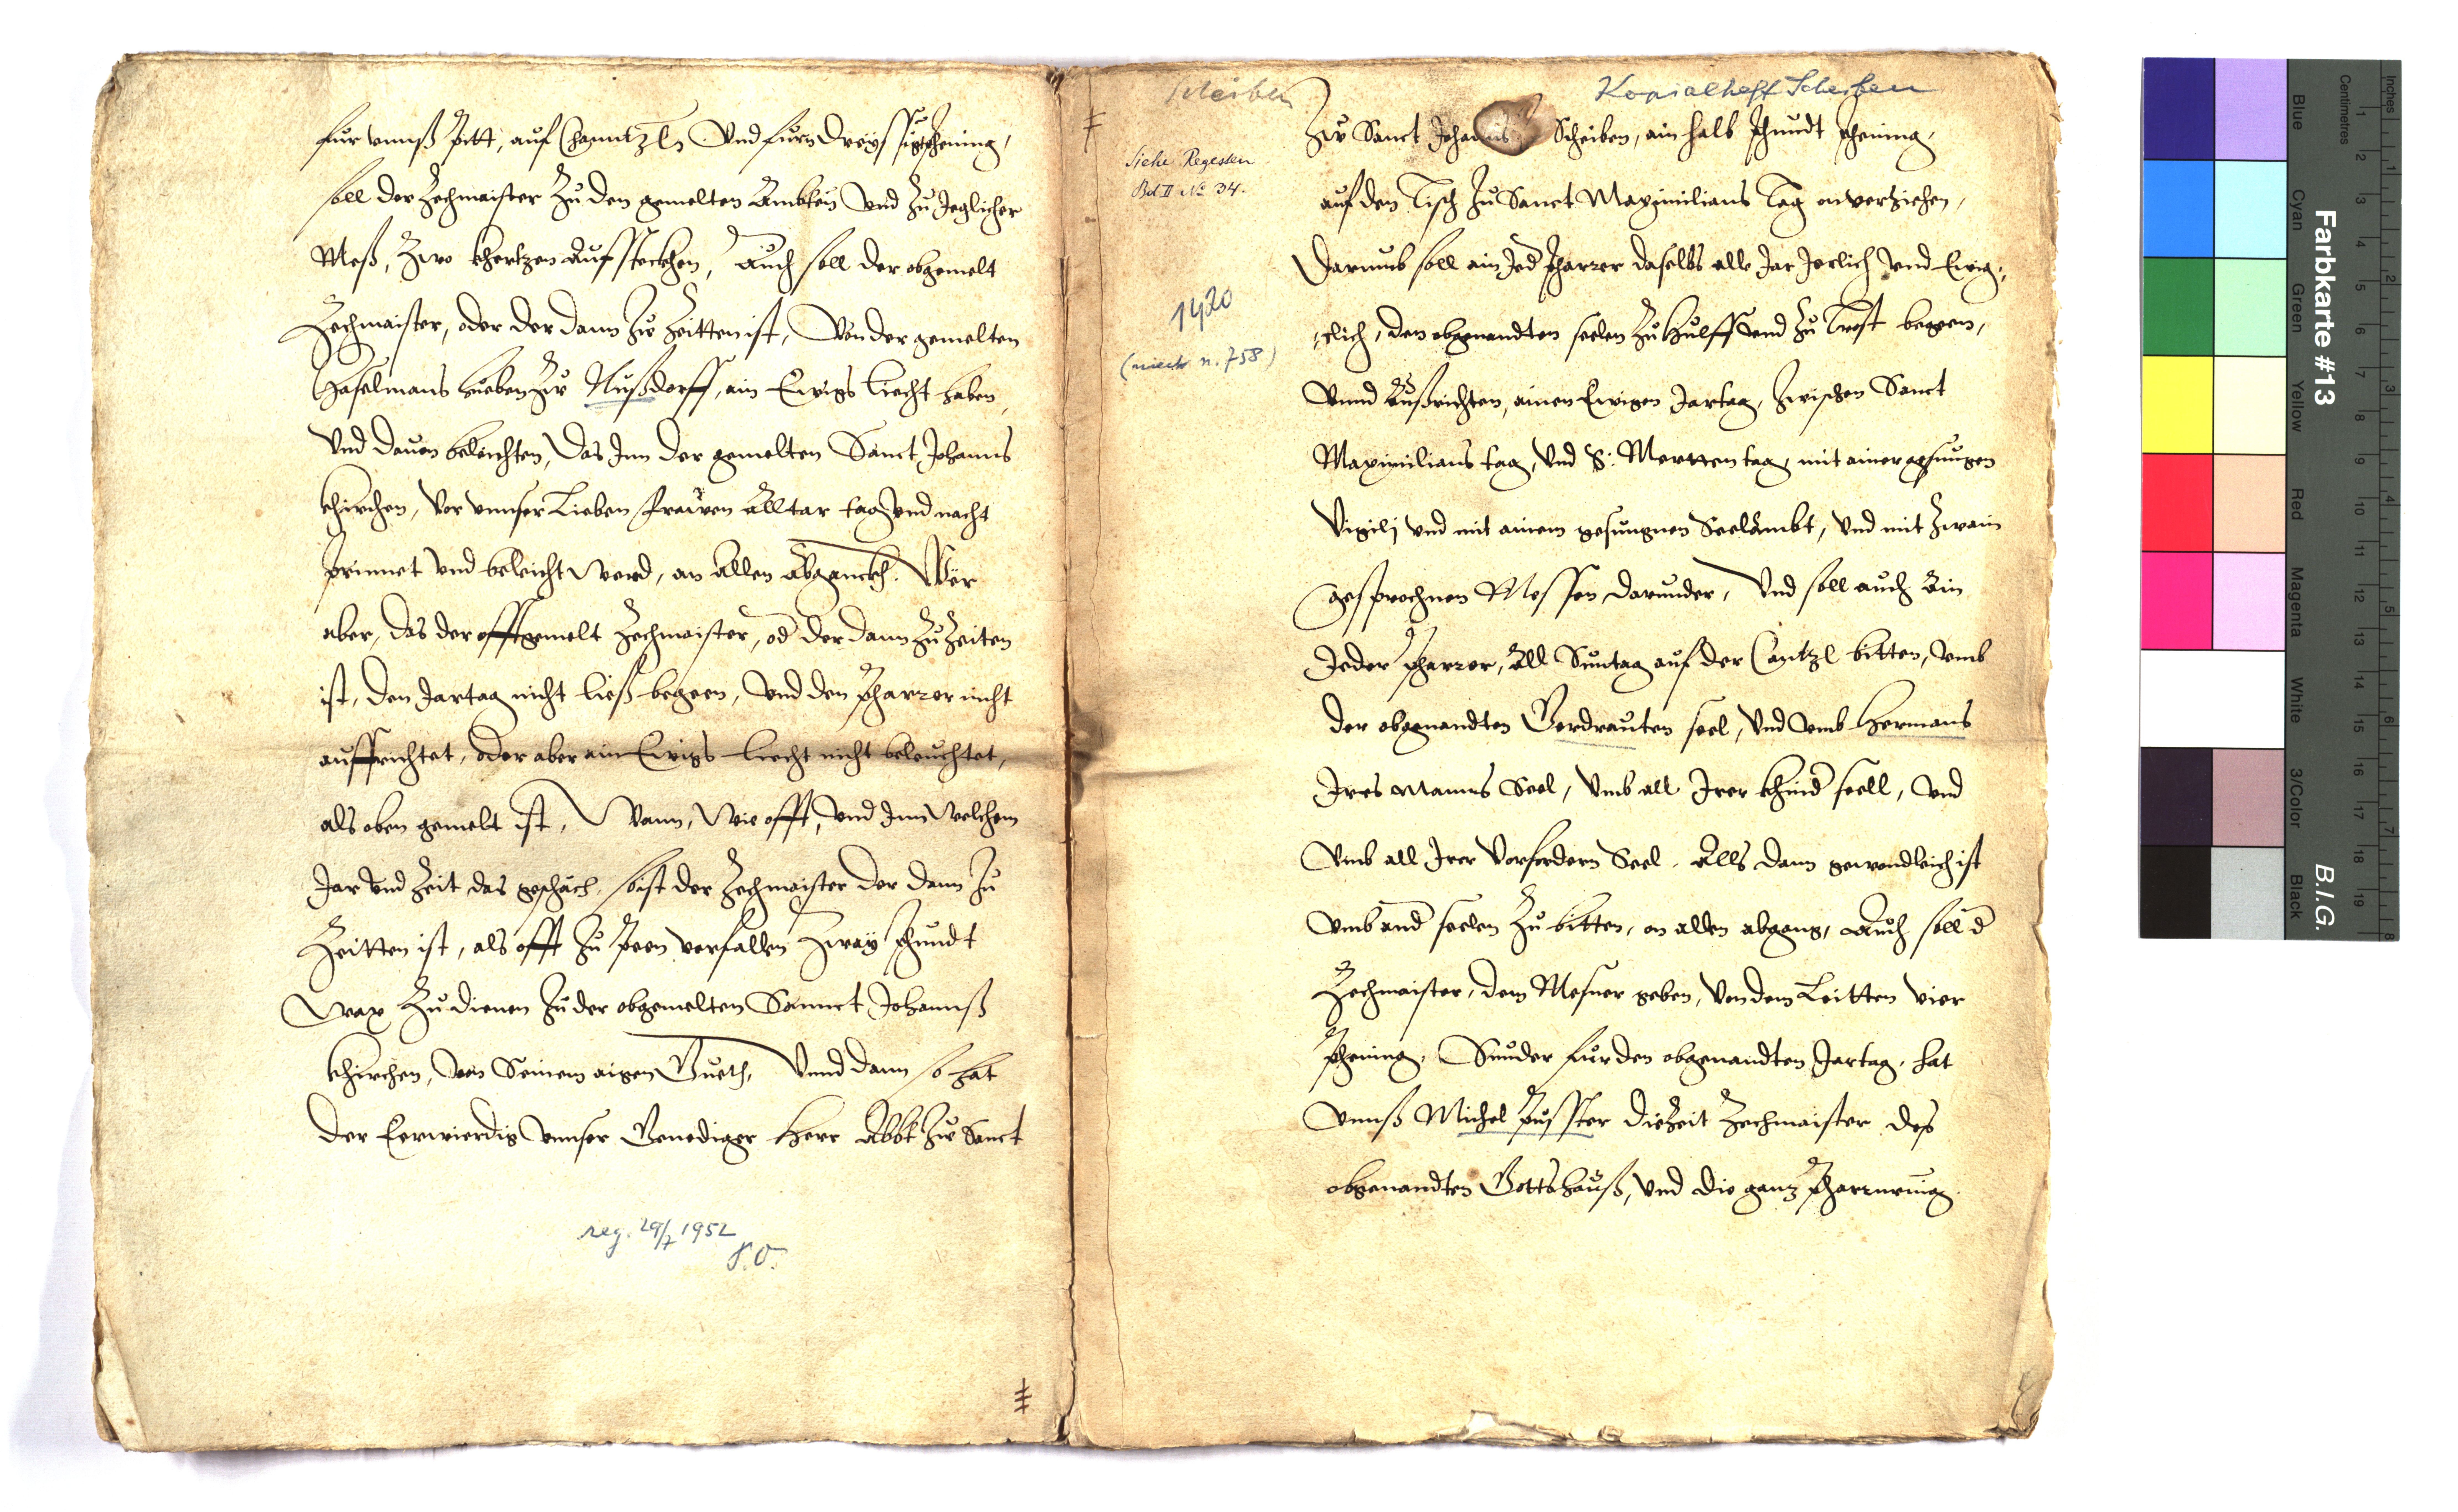 fur unnß pitt, auf Channtzln Und furn dreÿssigpfhening,
soll der Zechmaister Zu den gemelten Ämbtern Und Zu Jeglicher
Meß, Zwo khertzen Aufsteckhen, Auch soll der obgemelt
Zechmaister, oder der dann Zw Zeitten ist, Von der gemelten
Haselmans hueben Zw Nußdorff, ain Ewigs liecht haben,
Und dauon beleichten, Das Inn der gemelten Sanct Johanns
khirchen, Vor unnser Lieben frawen Alltar tag Und nacht
prinnet Und beleicht Werd, an Allen Abganckh. Wër
aber, das der offtgemelt Zechmaister, od der dann Zu Zeiten
ist, den Jartag nicht ließ begeen, Und den Pharrer nicht
auffrichtet, oder aber ain Ewigs liecht nicht beleuchtet,
als oben gemelt ist, Wann, Wie offt, Und Inn Welchem
Jar Und Zeit das geschäch, so ist der Zechmaister der dann Zu
Zeitten ist, als offt Zu Peen verfallen Zwaÿ Phundt
Wax Zu dienen Zu der obgemelten Sannct Johannß
khirchen, von Seinem aigen Gueth, Unnd dann so hat
der Eerwierdig Unnser Genediger Herr Abbt Zw Sanct
reg. 29/7 1952
Scheiben
Kopialheft Scheiben
Siehe Regesten
Bd II No 34.
1420
(niech n. 758)
Zw Sanct Johanns Scheiben, ain halb Phundt Phening,
auf den Tisch Zu Sanct Maximilians Tag onverziehen,
Darumb soll ain Jed Pharrer daselbs alle Jar Jerlich Und Ewig:,
:clich, den obgenandten seelen Zu Hulff Und Zu Trost begeen,
Unnd Außrichten, ainen Ewigen Jartag, Zwischen Sanct
Maximilians tag, Und S: Mertten tag, mit ainer gesungen
Vigilj Und mit ainem gesungnen Seelambt, Und mit Zwain
gesprochnen Messen darunder, Und soll auch Ain
Jeder Pharrer, All Suntag auf der Cantzl bitten, Umb
der obgenandten Gerdrauten seel, Und Umb Hermans
Ires Manns Seel, Umb all Irer khind seell, Und
Umb all Irer Vorfordern Seel. Alls dann gewondleich ist
Umb and seelen Zu bitten, on allen abgang, Auch soll d
Zechmaister, dem Mesner geben, Von dem Leitten vier
Phening, Sunder für den obgenandten Jartag, hat
Unnß Michel Pusster die Zeit Zechmaister des
obgenandten Gottshauß, Und die ganz Pharrmenig